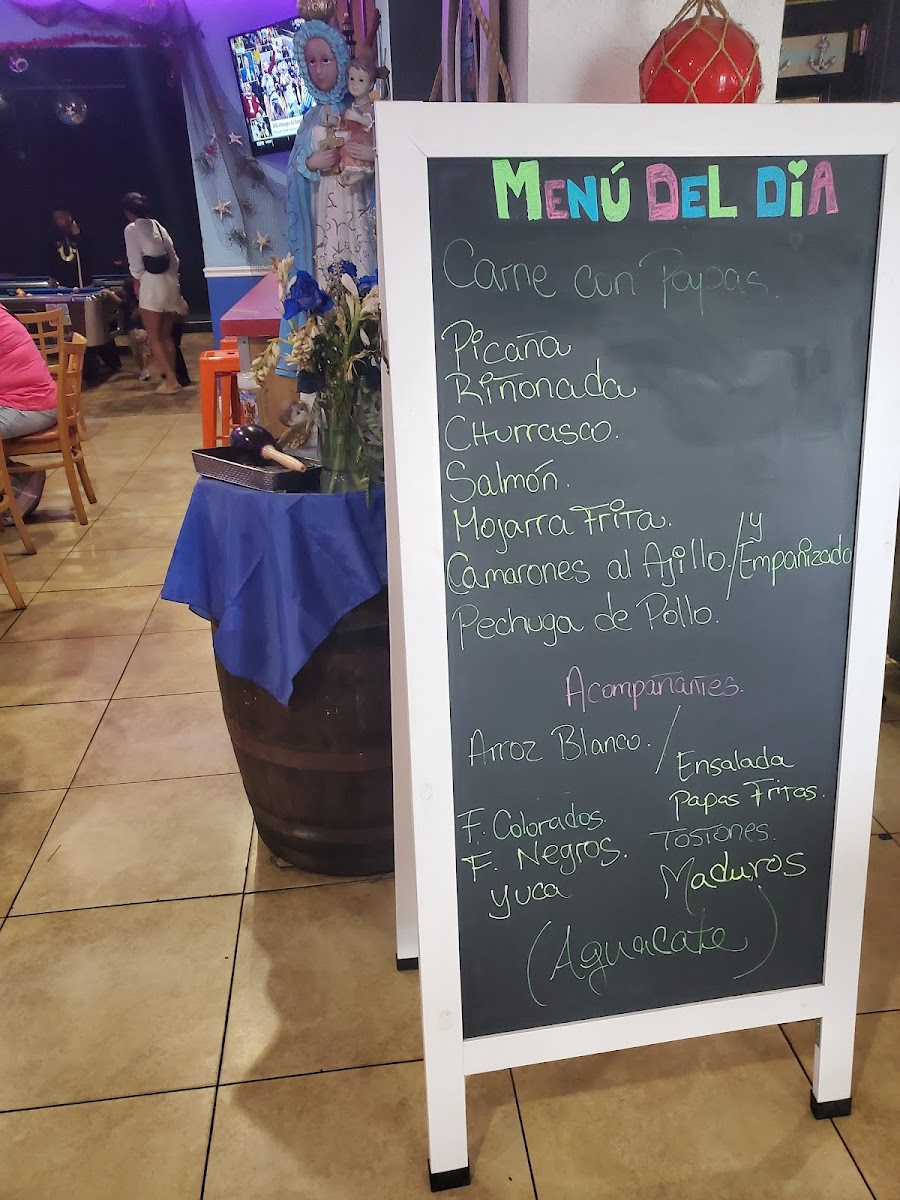 MENÚ DEL DIA
Carne con Papas.
Picaña
Riñonada
CHurrasco.
Salmón.
Mojarra Frita.
Camarones al Ajillo./y Empañizado
Pechuga de Pollo.
Acompañantes.
Arroz Blanco. /
Ensalada
Papas Fritas.
F. Colorados
Tostones.
F. Negros.
Maduros
yuca
(Aguacate)